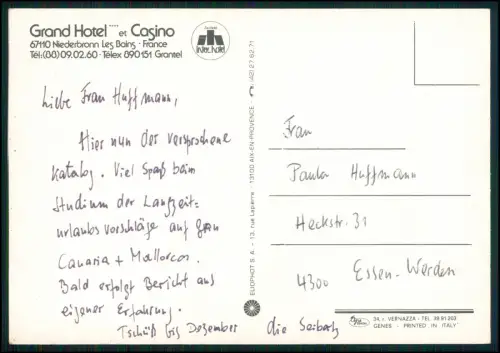 Grand Hotel **** et Casino
67110 Niederbronn Les Bains - France
Tél: (88) 09.02.60 - Télex 890 151 Grantel
inter hotel
Liebe Frau Huffmann,
Hier nun der versprochene
Katalog. Viel Spaß beim
Studium der Langzeit-
urlaubsvorschläge auf Gran
Canaria + Mallorca.
Bald erfolgt Bericht aus
eigener Erfahrung.
Tschüß bis Dezember
die Seibertz
ELIOPHOT S.A. - 13, rue Lapierre - 13100 AIX-EN-PROVENCE - (42) 27.82.71
Frau
Paula Huffmann
Heckstr. 31
4300 Essen-Werden
34, r. VERNAZZA - TEL. 38 81 263
GENES - PRINTED IN ITALY